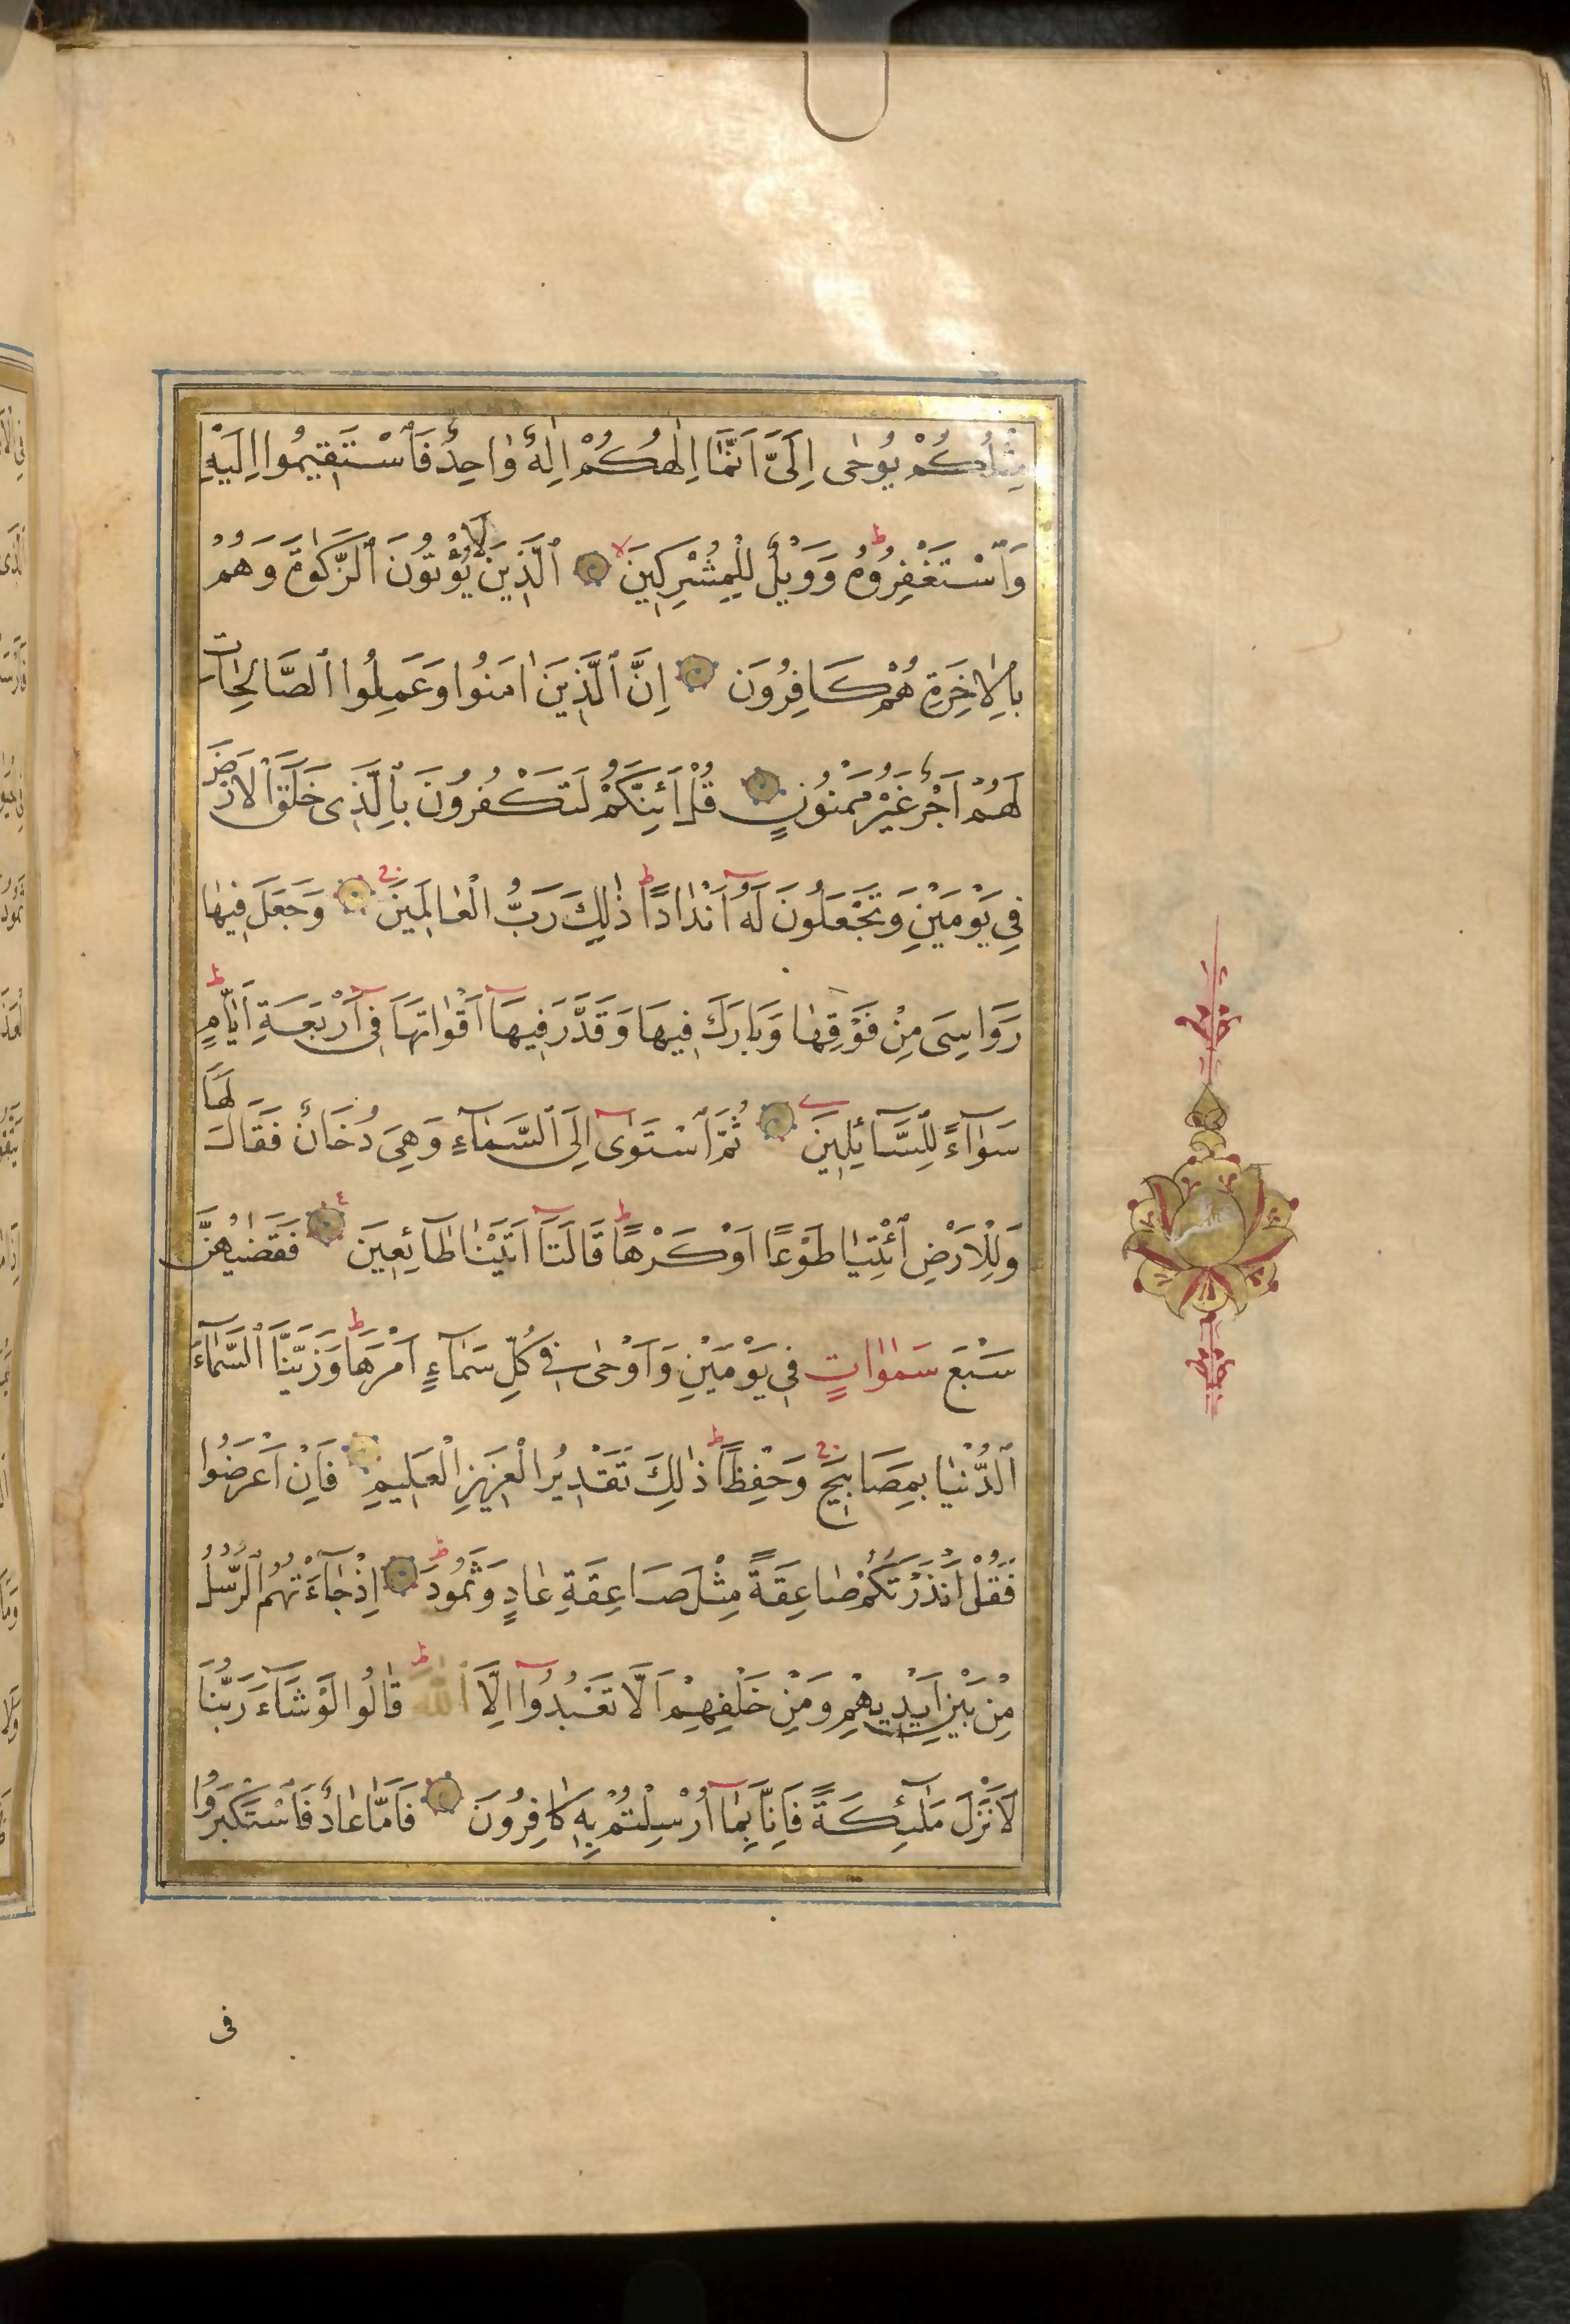 مِثْلُكُمْ يُوحٰى اِلَىَّ اَنَّمَٓا اِلٰهُكُمْ اِلٰهٌ وٰاحِدٌ فَٱسْتَقِيمُوا اِلَيْهِ
وَٱسْتَغْفِرُوهُ ط وَوَيْلٌ لِلْمُشْرِكِينَ لا ٱلَّذِينَ لَا يُؤْتُونَ ٱلزَّكٰوةَ وَهُمْ
بِالْاٰخِرَةِ هُمْ كَافِرُونَ اِنَّ ٱلَّذِينَ اٰمَنُوا وَعَمِلُوا ٱلصَّالِحَاتِ
لَهُمْ اَجْرٌ غَيْرُ مَمْنُونٍ قُلْ اَئِنَّكُمْ لَتَكْفُرُونَ بِٱلَّذِى خَلَقَ ٱلْاَرْضَ
فِي يَوْمَيْنِ وَتَجْعَلُونَ لَهُٓ اَنْدٰادًا ط ذٰلِكَ رَبُّ الْعٰالَمِينَ ج وَجَعَلَ فِيهٰا
رَوَاسِىَ مِنْ فَوْقِهٰا وَبَارَكَ فِيهَا وَقَدَّرَ فِيهَٓا اَقْوٰاتَهَا فِٓى اَرْبَعَةِ اَيّٰامٍ ط
سَوٰٓاءً لِلسَّٓائِلِينَ ثُمَّ ٱسْتَوٰٓى اِلَى ٱلسَّمٰٓاءِ وَهِىَ دُخَانٌ فَقَالَ لَهَا
وَلِلْاَرْضِ ٱئْتِيٰا طَوْعًا اَوْ كَرْهًا ط قَالَتَٓا اَتَيْنٰا طَٓائِعِينَ ٤ فَقَضٰيهُنَّ
سَبْعَ سَمٰوٰاتٍ فِى يَوْمَيْنِ وَاَوْحٰى فِي كُلِّ سَمَٓاءٍ اَمْرَهَا ط وَزَيَّنَّا ٱلسَّمَٓاءَ
ٱلدُّنْيٰا بِمَصَابِيحَ ج وَحِفْظًا ط ذٰلِكَ تَقْدِيرُ الْعَزِيزِ الْعَلِيمِ فَاِنْ اَعْرَضُوا
فَقُلْ اَنْذَرْتُكُمْ صٰاعِقَةً مِثْلَ صَاعِقَةِ عٰادٍ وَثَمُودَ ط اِذْ جَٓاءَتْهُمُ ٱلرُّسُلُ
مِنْ بَيْنِ اَيْدِيهِمْ وَمِنْ خَلْفِهِمْ اَلَّا تَعْبُدُٓوا اِلَّا ٱللّٰهَ ط قٰالُوا لَوْ شَٓاءَ رَبُّنَا
لَاَنْزَلَ مَلٰٓئِكَةً فَاِنَّا بِمَٓا اُرْسِلْتُمْ بِهِ كَافِرُونَ فَاَمَّا عٰادٌ فَاسْتَكْبَرُوا
فى